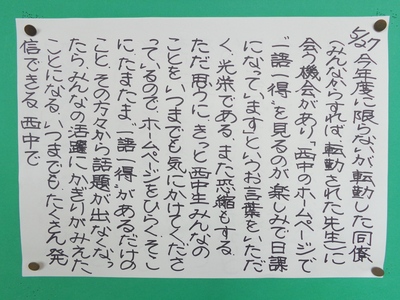 5/27 今年度に限らないが、転動した同僚
(みんなからすれば、転動された先生)に
会う機会があり「西中のホームページで
“一語一得”を見るのが楽しみで日課
になっています」というお言葉をいただ
く。光栄である。また恐縮もする。
ただ思うに、きっと西中生みんなの
ことをいつまでも気にかけてくださ
っているので、ホームページをひらく。そこ
に、たまたま“一語一得”があるだけの
こと。その方々から話題が出なくなっ
たら、みんなの活躍にかぎりがみえた
ことになる。いつまでも、たくさん発
信できる西中で